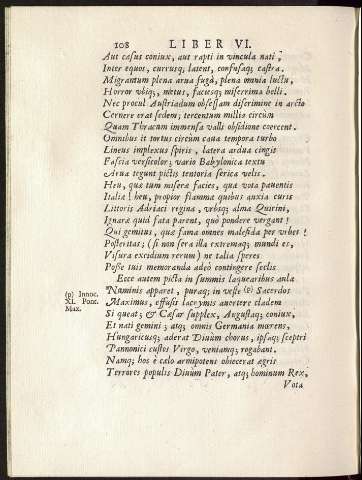 108 LIBER VI.
Aut casus coniux, aut rapti in vincula nati,
Inter equos, currusq; latent, confusaq; castra.
Migrantum plena arua fugâ, plena omnia luctu,
Horror vbiq;, metus, faciesq; miserrima belli.
Nec procul Austriadum obsessam discrimine in arcto
Cernere erat sedem; tercentum millis circùm
Quam Thracum immensa valli obsidione coercent.
Omnibus it tortus circùm caua tempora turbo
Lineus implexus spiris, latera ardua cingit
Fascia versicolor; vario Babylonica textu
Arua tegunt pictis tentoria serica velis.
Heu, quæ tum miseræ facies, quæ vota pauentis
Italiæ! heu, propior flamma quibus anxia curis
Littoris Adriaci regina, vrbsq; alma Quirini,
Ignaræ quid fata parent, quò pondere vergant!
Qui gemitus, quæ fama omens malefida per vrbes!
Posteritas; (si non sera illa extremaq; mundi es,
Visura excidium rerum) ne talia speres
Posse tuis memoranda adeò contingere seclis
Ecce autem picta in summis laquearibus aula
Numinis apparet, puraq; in veste (p) Sacerdos
(p) Innoc. XI. Pont. Max.
Maximus, effusis lacrymis auertere cladem
Si queat; & Cæsar supplex, Augustaq; coniux,
Et nati gemini; atq; omnis Germania mœrens,
Hungaricusq; aderat Diuûm chorus, ipsaq; sceptri
Pannonici custos Virgo, veniamq; rogabant.
Namq; hos è cælo armipotens obiecerat ægris
Terrores populis Diuûm Pater, atq; hominum Rex,
Vota